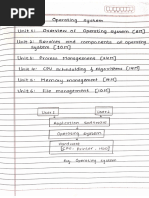 Operating System
Unit 1: Overview of Operating System [8M]
Unit 2: Services and components of operating
system [10M]
Unit 3: Process Management [14M]
Unit 4: CPU Scheduling & Algorithms [14M]
Unit 5: Memory management [14M]
Unit 6: File management. [10M]
User 1
User 2
Application Software
Operating System
Hardware
[CPU, Printer, HDD]
Fig: Operating System